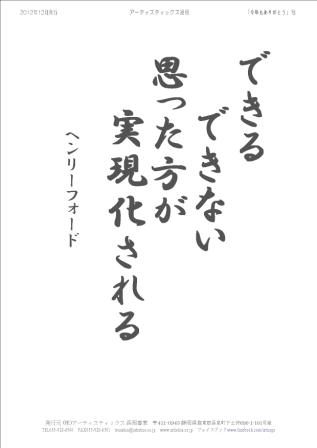 2012年12月号
アーティスティックス通信
「今年もありがとう」号
できる
できない
思った方が
実現化される
ヘンリーフォード